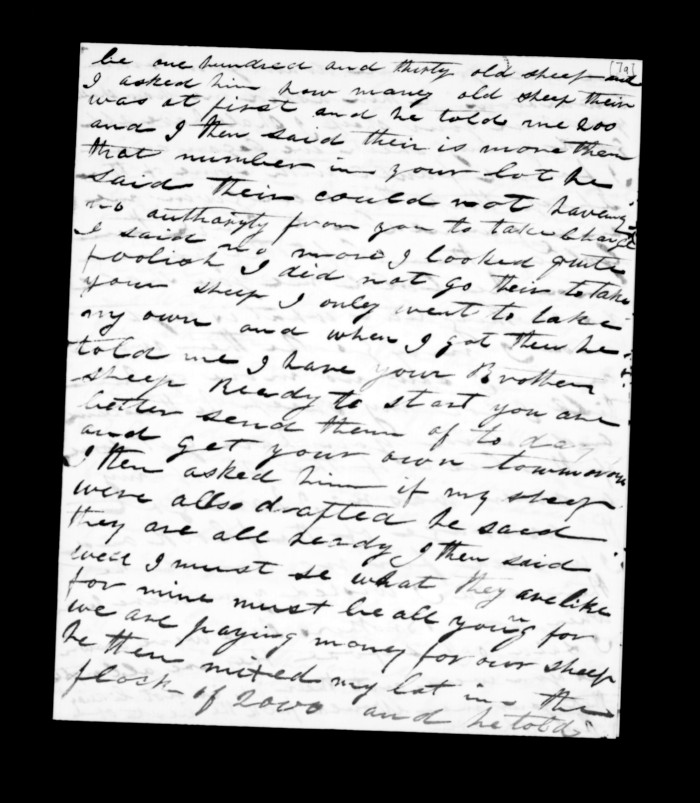 [7a]
be one hundred and thirty old sheep and
I asked him how many old sheep their
was at first and he told me 200
and I then said their is more then
that number in your lot he
said their could not having
no authority from you to take charge
I said no more I looked quite
foolish I did not go their to take
your sheep I only went to take
my own and when I got then he
told me I have your Brothers
sheep Ready to start you are
better send them of to day
and get your own tommorow
I then asked him if my sheep
were allso drafted he saed
they are all ready I then said
well I must se what they are like
for mine must be all young for
we are paying money for our sheep
he then mixed my lot in the
flock of 2000 and he told